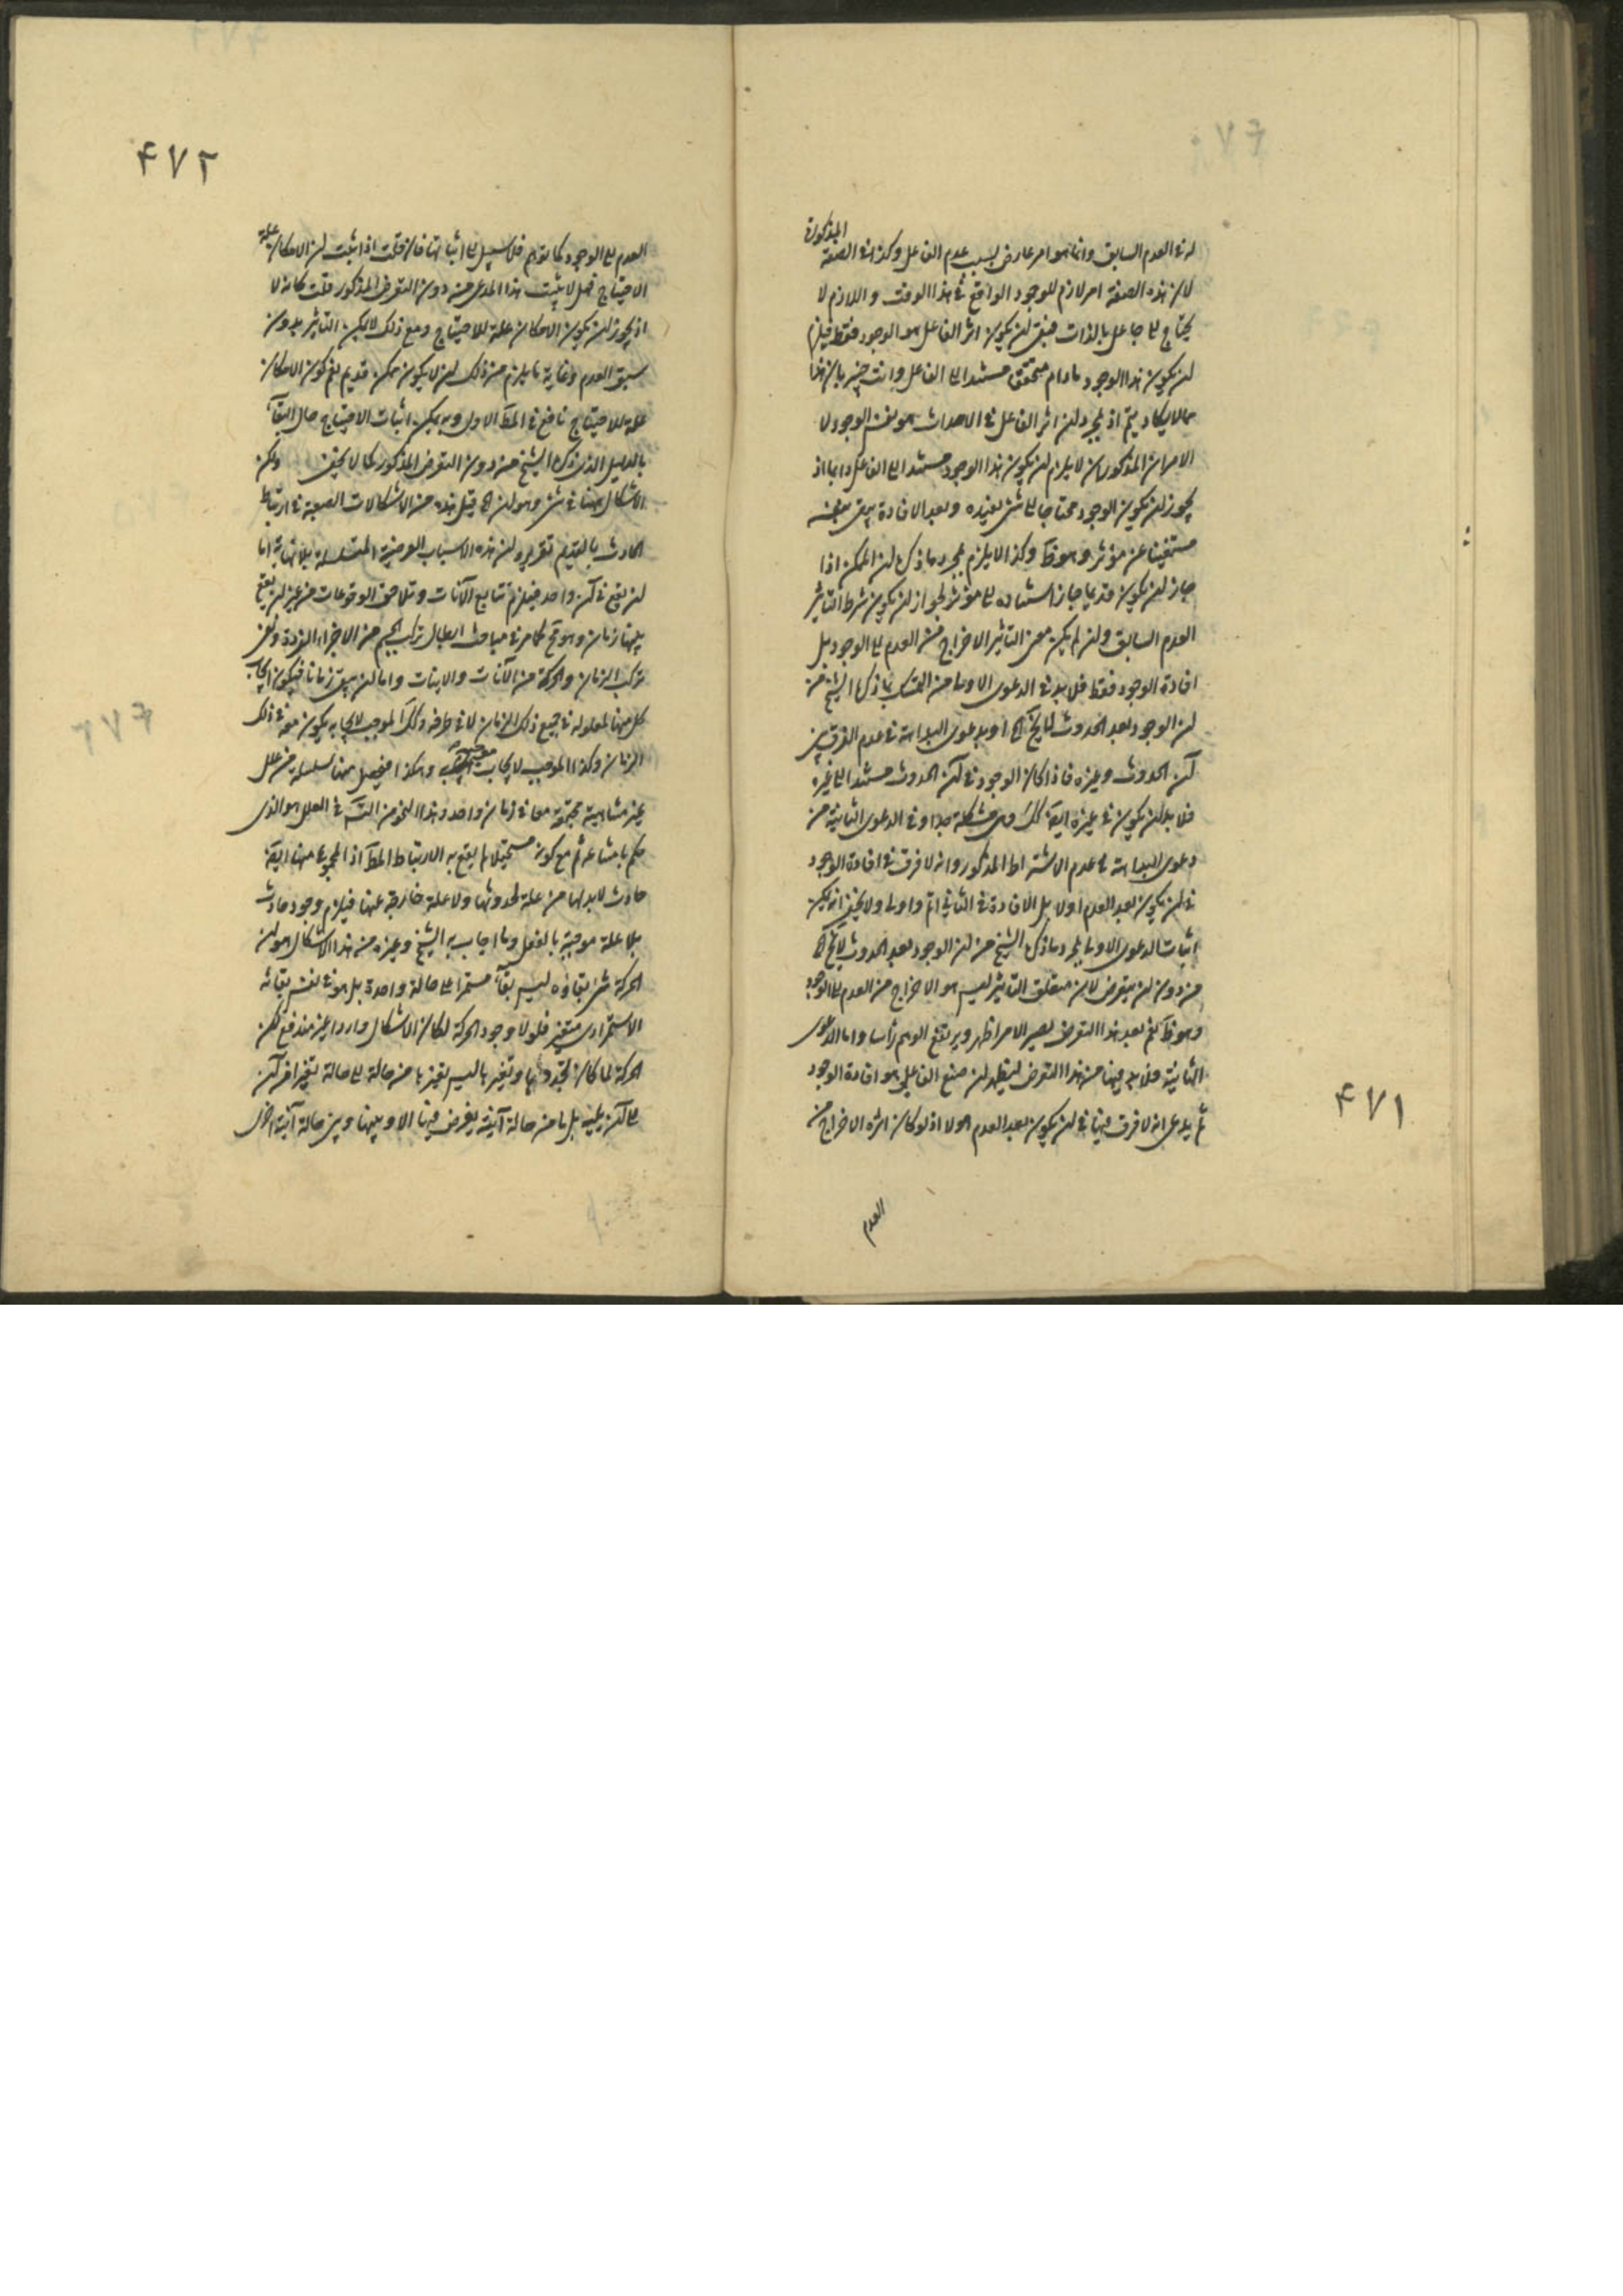 ۴۷۱
المذكورة
له في العدم السابق وانما هو امر عارض بسبب عدم الفاعل وكذا في الصفة
لان هذه الصفة امر لازم للوجود الواقع في هذا الوقت واللازم لا
يحتاج الى جاعل بالذات فبقى ان يكون اثر الفاعل هو الوجود فقط فيلزم
ان يكون هذا الوجود مادام متحقق مستندا الى الفاعل وانت خبير بان هذا
مما لا يكاد يتم اذ بمجرد ان اثر الفاعل في الاحداث هو نفس الوجود لا
الامران المذكوران لا يلزم ان يكون هذا الوجود مستندا الى الفاعل دايما اذ
يجوز ان يكون الوجود محتاجا الى شئ يفيده وبعد الافادة يبقى بنفسه
مستغنيا عن مؤثر وهو ظ وكذا لا يلزم بمجرد ما ذكره ان الممكن اذا
جاز ان يكون قديما جاز استناده الى مؤثر لجواز ان يكون شرط التاثير
العدم السابق وان لم يكن معنى التاثير الاخراج من العدم الى الوجود بل
افادة الوجود فقط فلا بد في الدعوى الاولى من التمسك بما ذكره الشيخ من
ان الوجود بعد الحدوث لا يخ اه او بدعوى البداهة في عدم الفرق بين
آن الحدوث وغيره فاذا كان الوجود في آن الحدوث مستندا الى غيره
فلا بد ان يكون في غيره ايضا كك وهى مشكلة جدا وفي الدعوى الثانية من
دعوى البداهة في عدم الاشتراط المذكور وانه لا فرق في افادة الوجود
في ان يكون بعد العدم اولا بل الافادة في الثاني اتم واولى ولا يخفى انه يمكن
اثبات الدعوى الاولى بمجرد ما ذكره الشيخ من ان الوجود بعد الحدوث لا يخ اه
من دون ان يتعرض لان متعلق التاثير ليس هو الاخراج من العدم الى الوجود
وهو ظ نعم بعد هذا التعرض يصير الامر اظهر ويرتفع الوهم راسا واما الدعوى
الثانية فلا بد فيها من هذا التعرض ليظهر ان صنع الفاعل هو افادة الوجود
ثم يدعى انه لا فرق فيها في ان يكون بعد العدم اولا اذ لو كان اثره الاخراج من
العدم
۴۷۲
العدم الى الوجود كما توهم فلا سبيل الى اثباتها فان قلت اذا ثبت ان الامكان علة
الاحتياج فهل لا يثبت هذا المدعى منه دون التعرض المذكور قلت كانه لا
اذ يجوز ان يكون الامكان علة للاحتياج ومع ذلك لا يمكن التاثير بدون
سبق العدم وغاية ما يلزم من ذلك ان لا يكون ممكن قديم نعم كون الامكان
علة للاحتياج نافع في المط الاول وبه يمكن اثبات الاحتياج حال البقاء
بالدليل الذى ذكره الشيخ من دون التعرض المذكور كما لا يخفى ولكن
الاشكال ههنا في شئ وهو ان اه قيل هذه من الاشكالات الصعبة في ارتباط
الحادث بالقديم تقريره ان هذه الاسباب العرضية المتسلسلة بلا نهاية اما
ان يقع في آن واحد فيلزم تتابع الآنات وتلاحق الوقوعات من غير ان يقع
بينها زمان وهو مح كما مر في مباحث ابطال تركب الجسم من الاجزاء الفردة ونفى
تركب الزمان والحركة من الآنات والاينات واما ان يبقى زمانا فيكون ايجاب
كل منها لمعلوله في جميع ذلك الزمان لا في طرفه وكك الموجب لايجابه يكون معه في ذلك
الزمان وكذا الموجب لايجاب وهكذا فيحصل ههنا سلسلة من علل
غير متناهية مجتمعة معا في زمان واحد وهذا النحو من التس في العلل هو الذى
حكم بامتناعه ثم مع كونه مستحيلا لم يقع به الارتباط المط اذ المجموع منها ايضا
حادث لا بد لها من علة لحدوثها ولا علة خارجة عنها فيلزم وجود حادث
بلا علة موجبة بالفعل وما اجاب به الشيخ وغيره من هذا الاشكال هو ان
الحركة شئ بقاؤه ليس بقاء مستمرا على حالة واحدة بل هو في نفس بقائه
الاستمرارى متغير فلولا وجود الحركة لكان الاشكال واردا غير مندفع لكن
الحركة لما كان تجددها وتغيرها ليس تغيرها من حالة الى حالة تغيرا من آن
الى آن يليه بل ما من حالة آنية يفرض فيها الا وبينها وبين حالة آنية اخرى